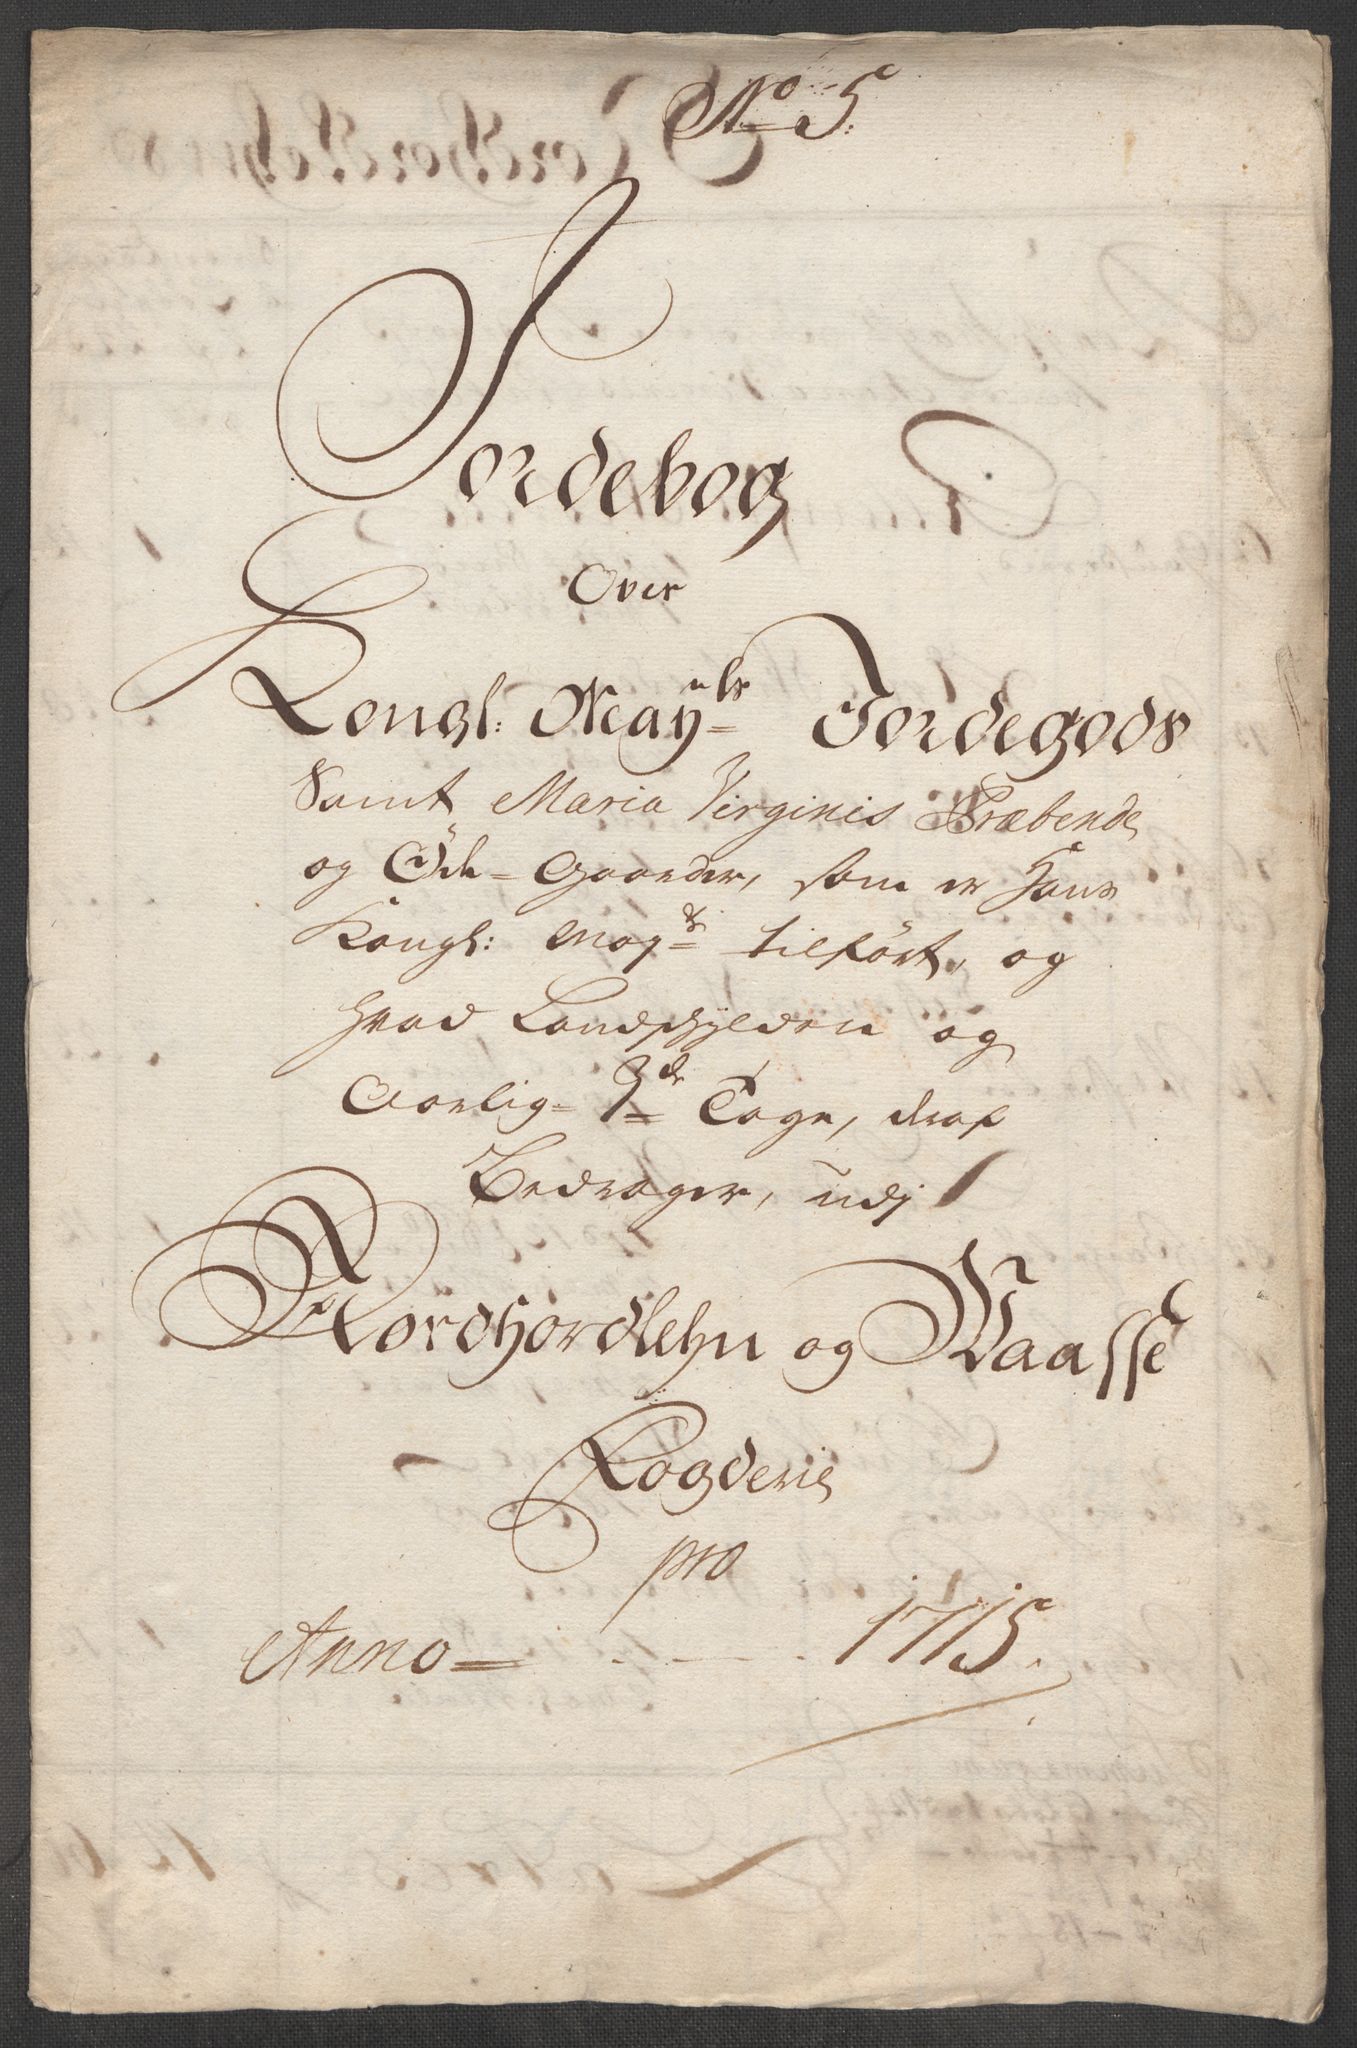 No 5.
Jordebog
Over
Kongl: Mayts Jordegods
Samt Maria Virginis Præbende
og Öde-Gaarder, som er Hans
Kongl: Mayts tilført, og
hvad Landskylden og
Aarlig 3de Tage, deraf
Bedrager, udj
Nordhordlehn og Waasse
Fogderie
pro
Anno 1715.